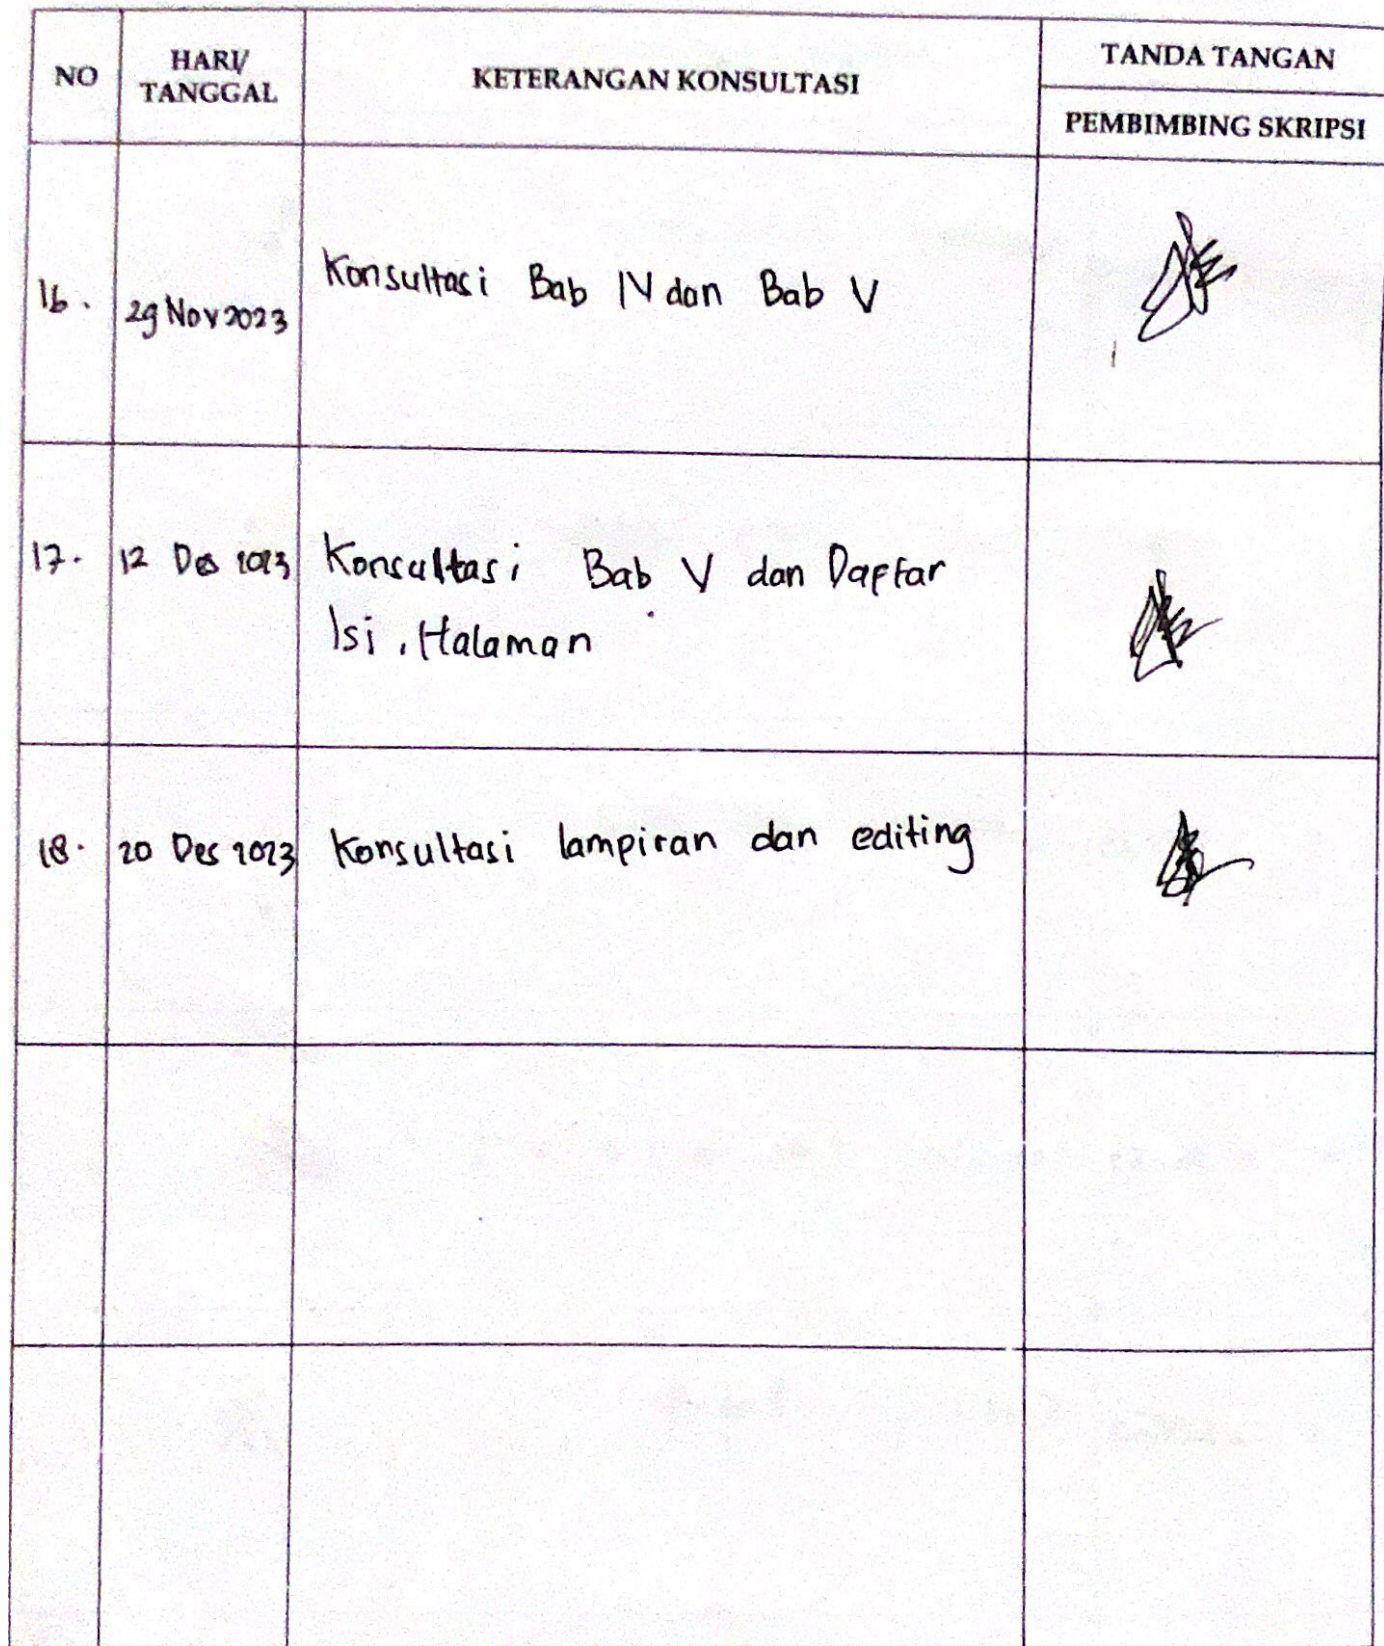 NO
HARI/
TANGGAL
KETERANGAN KONSULTASI
TANDA TANGAN
PEMBIMBING SKRIPSI
16.
29 Nov 2023
Konsultasi Bab IV dan Bab V
17.
12 Des 2023
Konsultasi Bab V dan Daftar
Isi, Halaman
18.
20 Des 2023
Konsultasi lampiran dan editing